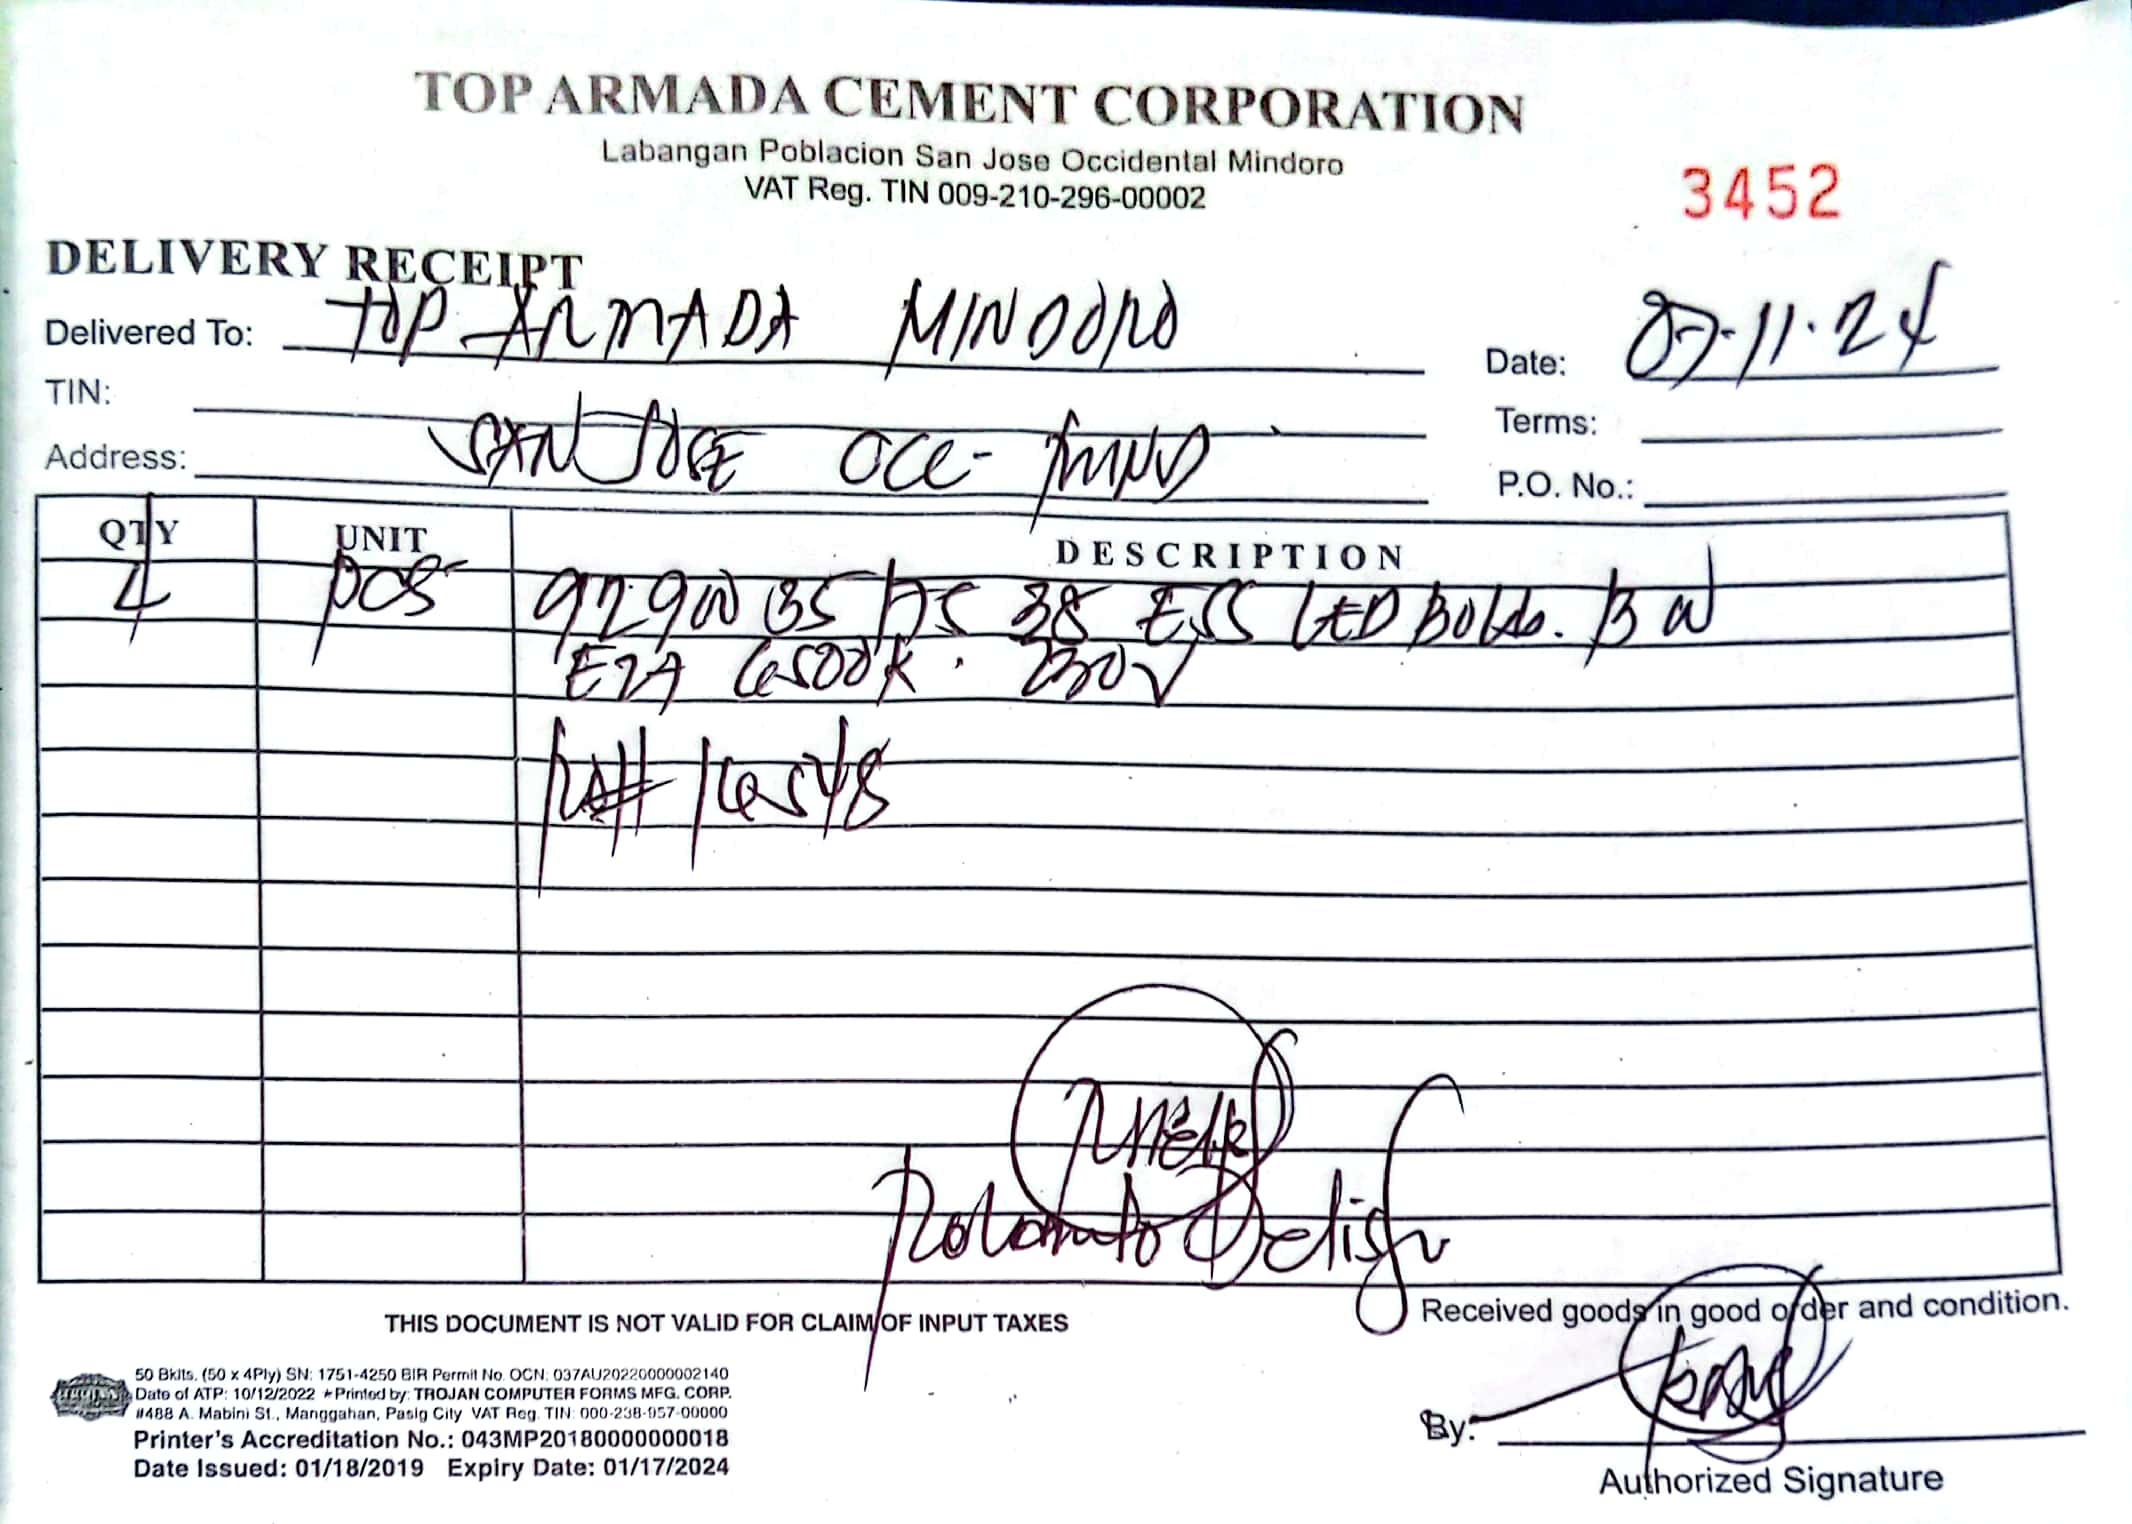 TOP ARMADA CEMENT CORPORATION
Labangan Poblacion San Jose Occidental Mindoro
VAT Reg. TIN 009-210-296-00002
3452
DELIVERY RECEIPT
Delivered To: TOP ARMADA MINDORO
Date: 07-11-24
TIN:
Terms:
Address: SAN JOSE OCC-
P.O. No.:
QTY UNIT DESCRIPTION
4 pcs 92900 35 38 ESS LED W
E27 6500K. 230V
16548
THIS DOCUMENT IS NOT VALID FOR CLAIM OF INPUT TAXES
Received goods in good order and condition.
50 Bklts. (50 x 4Ply) SN: 1751-4250 BIR Permit No. OCN: 037AU20220000002140
Date of ATP: 10/12/2022 * Printed by: TROJAN COMPUTER FORMS MFG. CORP.
#488 A. Mabini St., Manggahan, Pasig City VAT Reg. TIN: 000-238-957-00000
Printer's Accreditation No.: 043MP20180000000018
Date Issued: 01/18/2019 Expiry Date: 01/17/2024
By:
Authorized Signature